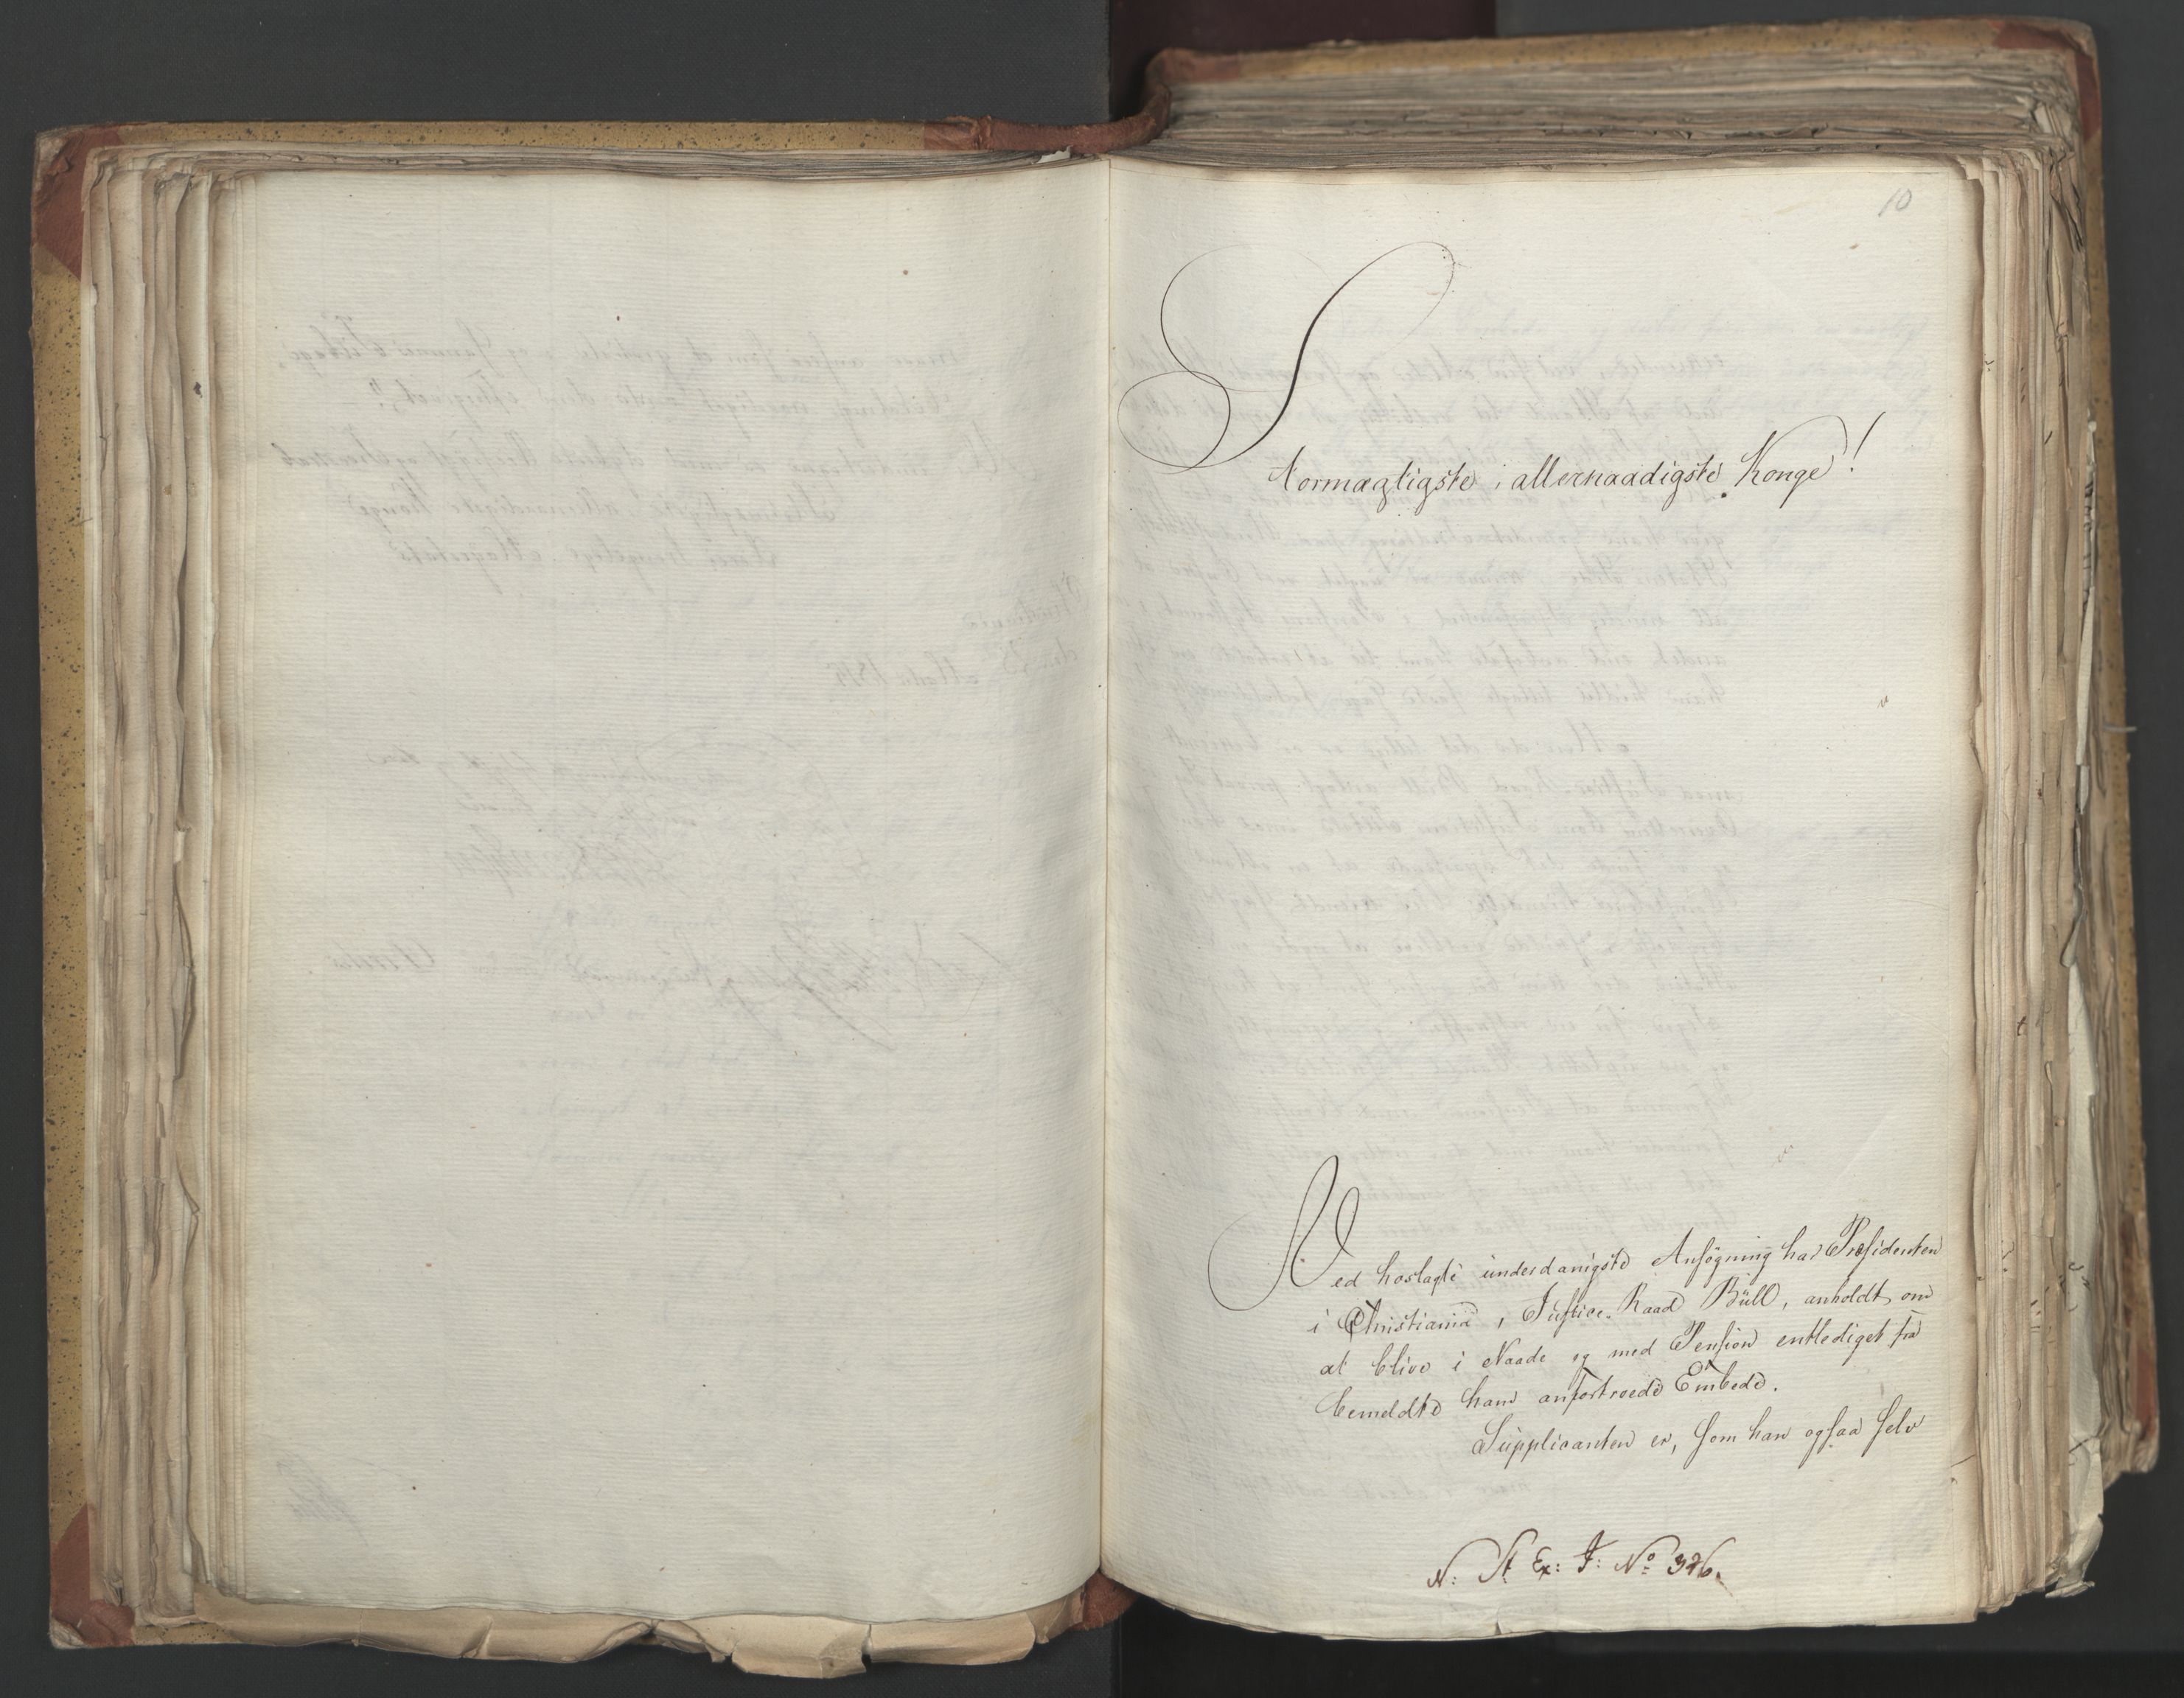 10
Stormægtigste, allernaadigste Konge!
Ved hoslagte underdanigste Ansögning har Præsidenten
i Christiania, Justice-Raad Büll, anholdt om
at blive i Naade og med Pension entlediget fra
bemeldte ham anfortroede Embede.
Suppliranten er, som han ogsaa selv
N: St. Ex: J: No 326.